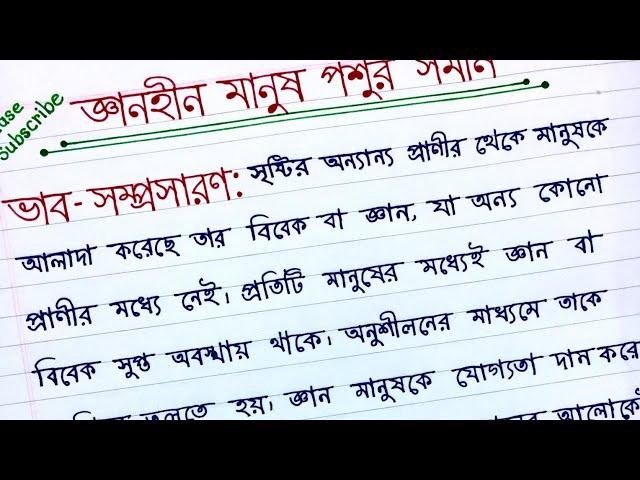 Subscribe
জ্ঞানহীন মানুষ পশুর সমান
ভাব-সম্প্রসারণ: সৃষ্টির অন্যান্য প্রাণীর থেকে মানুষকে
আলাদা করেছে তার বিবেক বা জ্ঞান, যা অন্য কোনো
প্রাণীর মধ্যে নেই। প্রতিটি মানুষের মধ্যেই জ্ঞান বা
বিবেক সুপ্ত অবস্থায় থাকে। অনুশীলনের মাধ্যমে তাকে
তুলতে হয়। জ্ঞান মানুষকে যোগ্যতা দান করে
আলোকেই